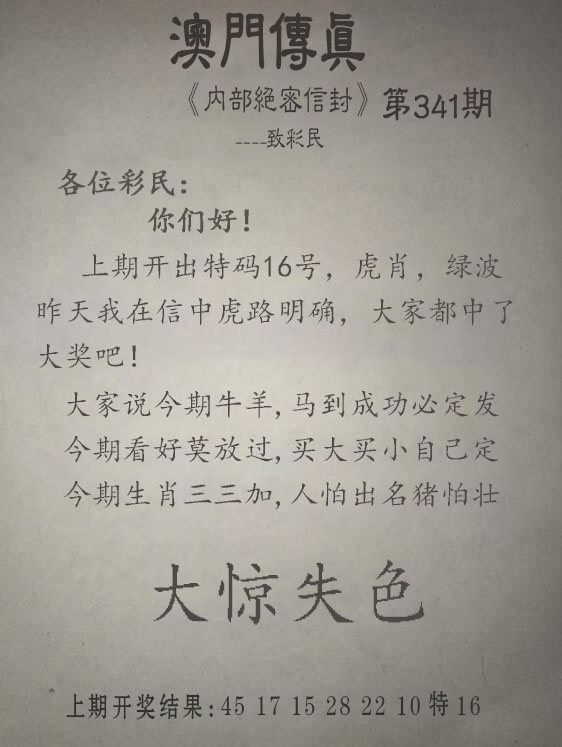 澳門傳真
《内部絕密信封》第341期
----致彩民
各位彩民：
你们好！
上期开出特码16号，虎肖，绿波
昨天我在信中虎路明确，大家都中了
大奖吧！
大家说今期牛羊,马到成功必定发
今期看好莫放过,买大买小自己定
今期生肖三三加,人怕出名猪怕壮
大惊失色
上期开奖结果:45 17 15 28 22 10特16